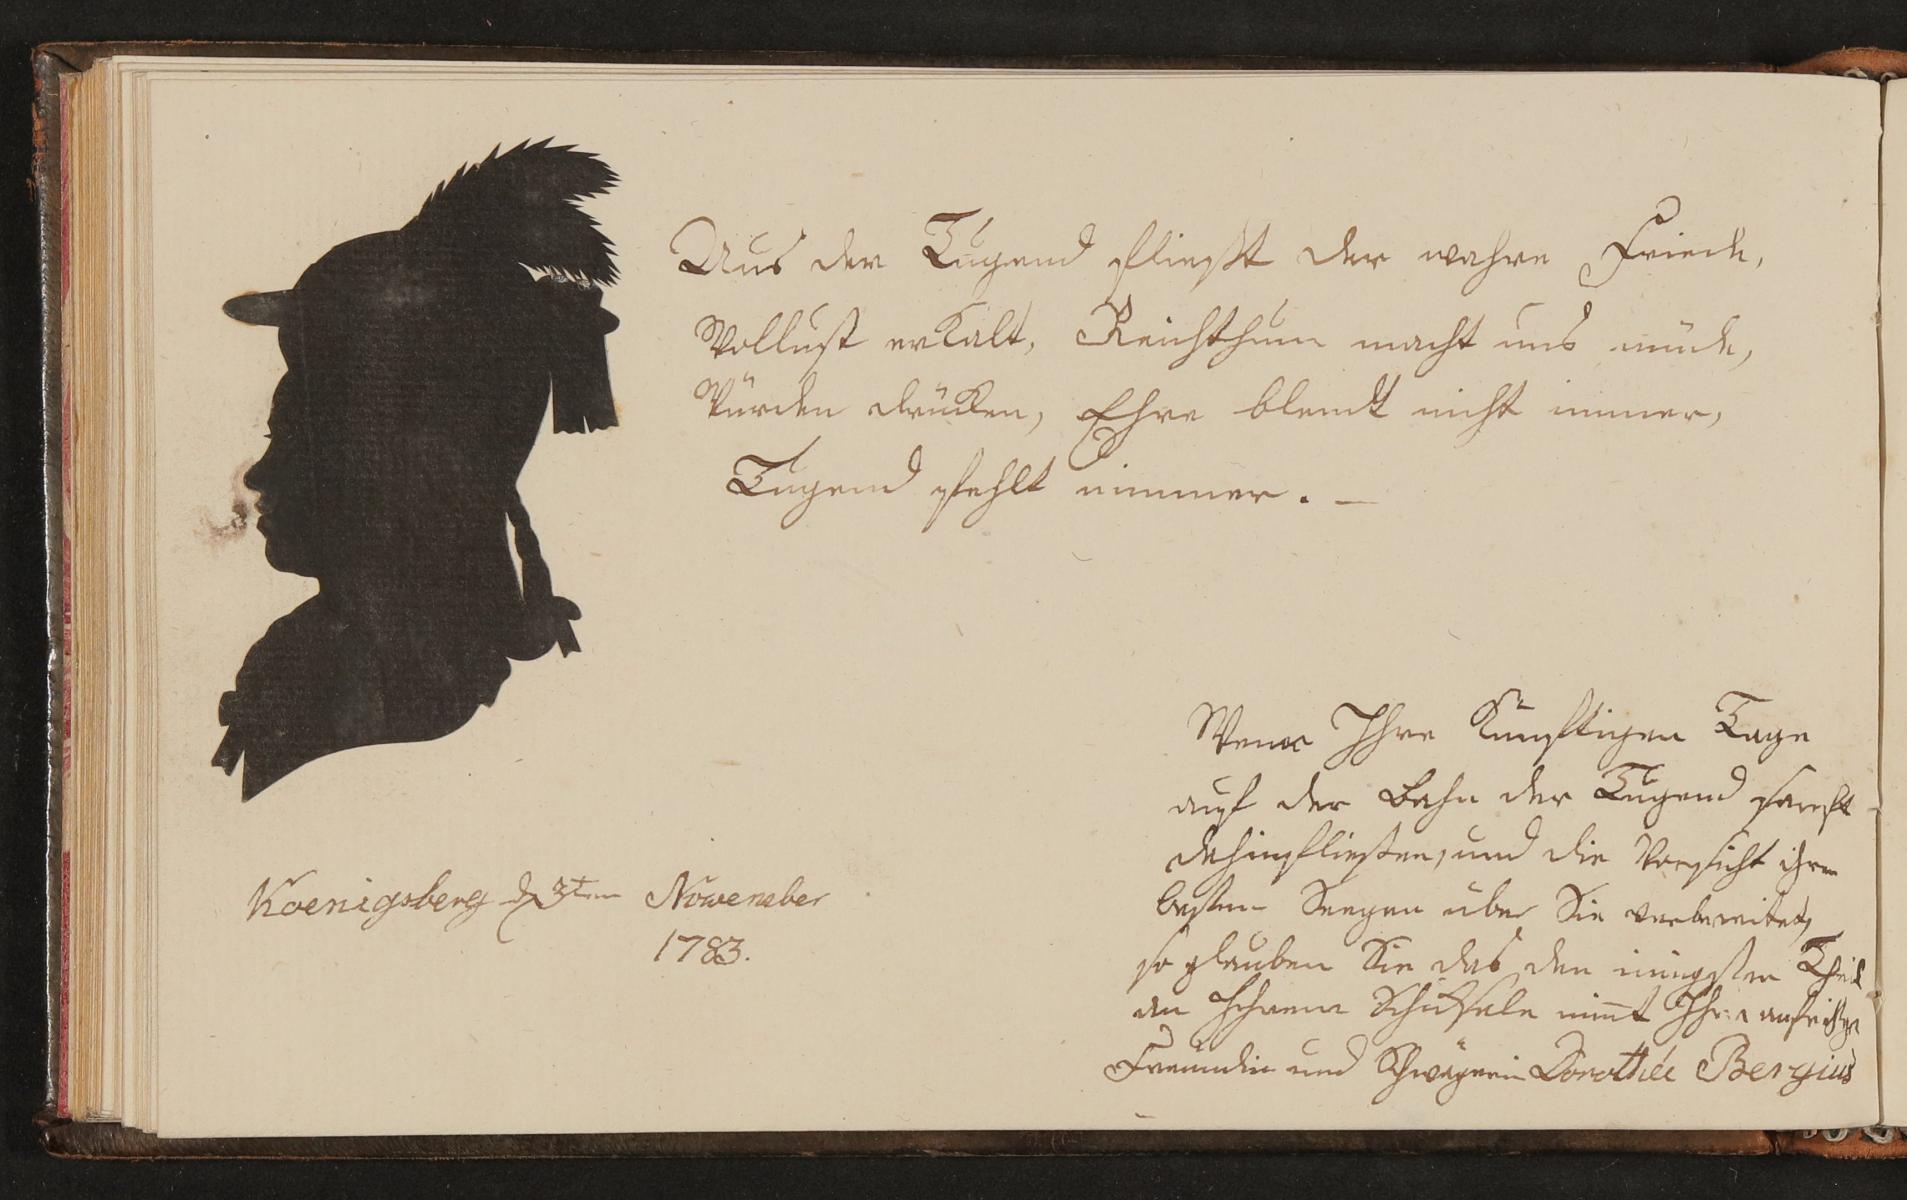 Aus der Tugend fließt der wahre Friede,
Wollust erkalt, Reichthum macht uns müde,
Würden drücken, Ehre blendt nicht immer,
Tugend fehlt nimmer. —
Wenn Ihre Künftigen Tage
auf der Bahn der Tugend sanft
dahinfließen, und die Vorsicht ihren
besten Seegen über Sie verbreitet,
so glauben Sie das den innigsten Theil
an Ihrem Schicksale nimt Ihre aufrichtige
Freundin und Schwägerin Dorothée Bergius
Koenigsberg d 3ten November
1783.